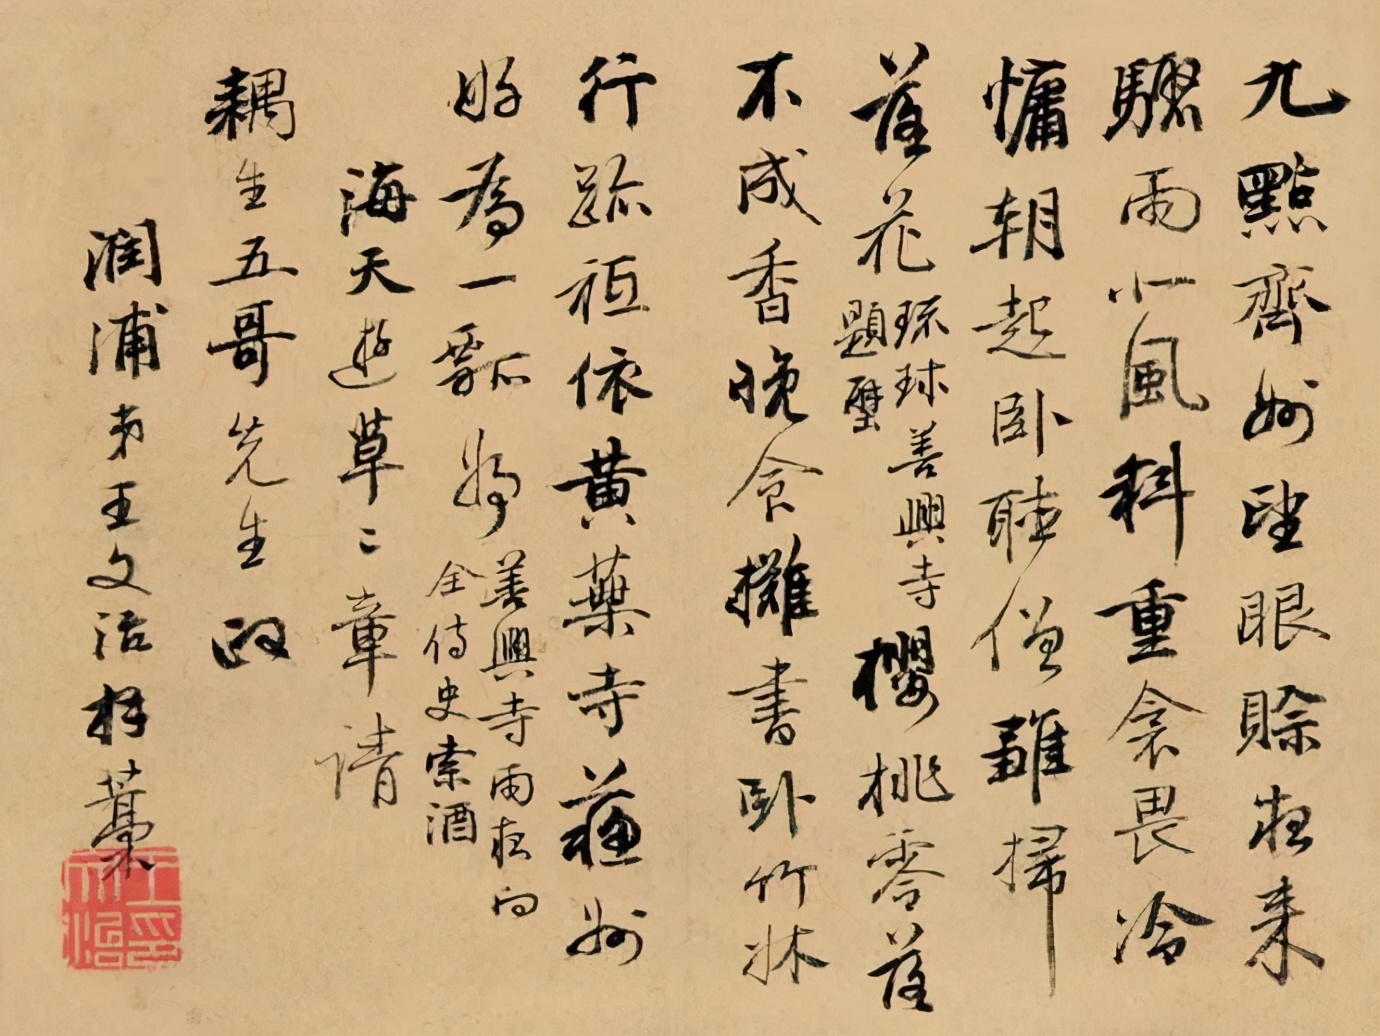 九點齊州望眼賒夜來
驟雨小風斜重衾畏冷
慵朝起卧聽僧雛掃
落花
琉球善興寺
題壁
櫻桃零落
不成香晚食攤書卧竹牀
行跡祗依黄藥寺蘇州
好為一瓢將
善興寺雨夜向
全侍史索酒
海天遊草二章請
耦生五哥先生政
潤浦弟王文治拜藁
王文治印